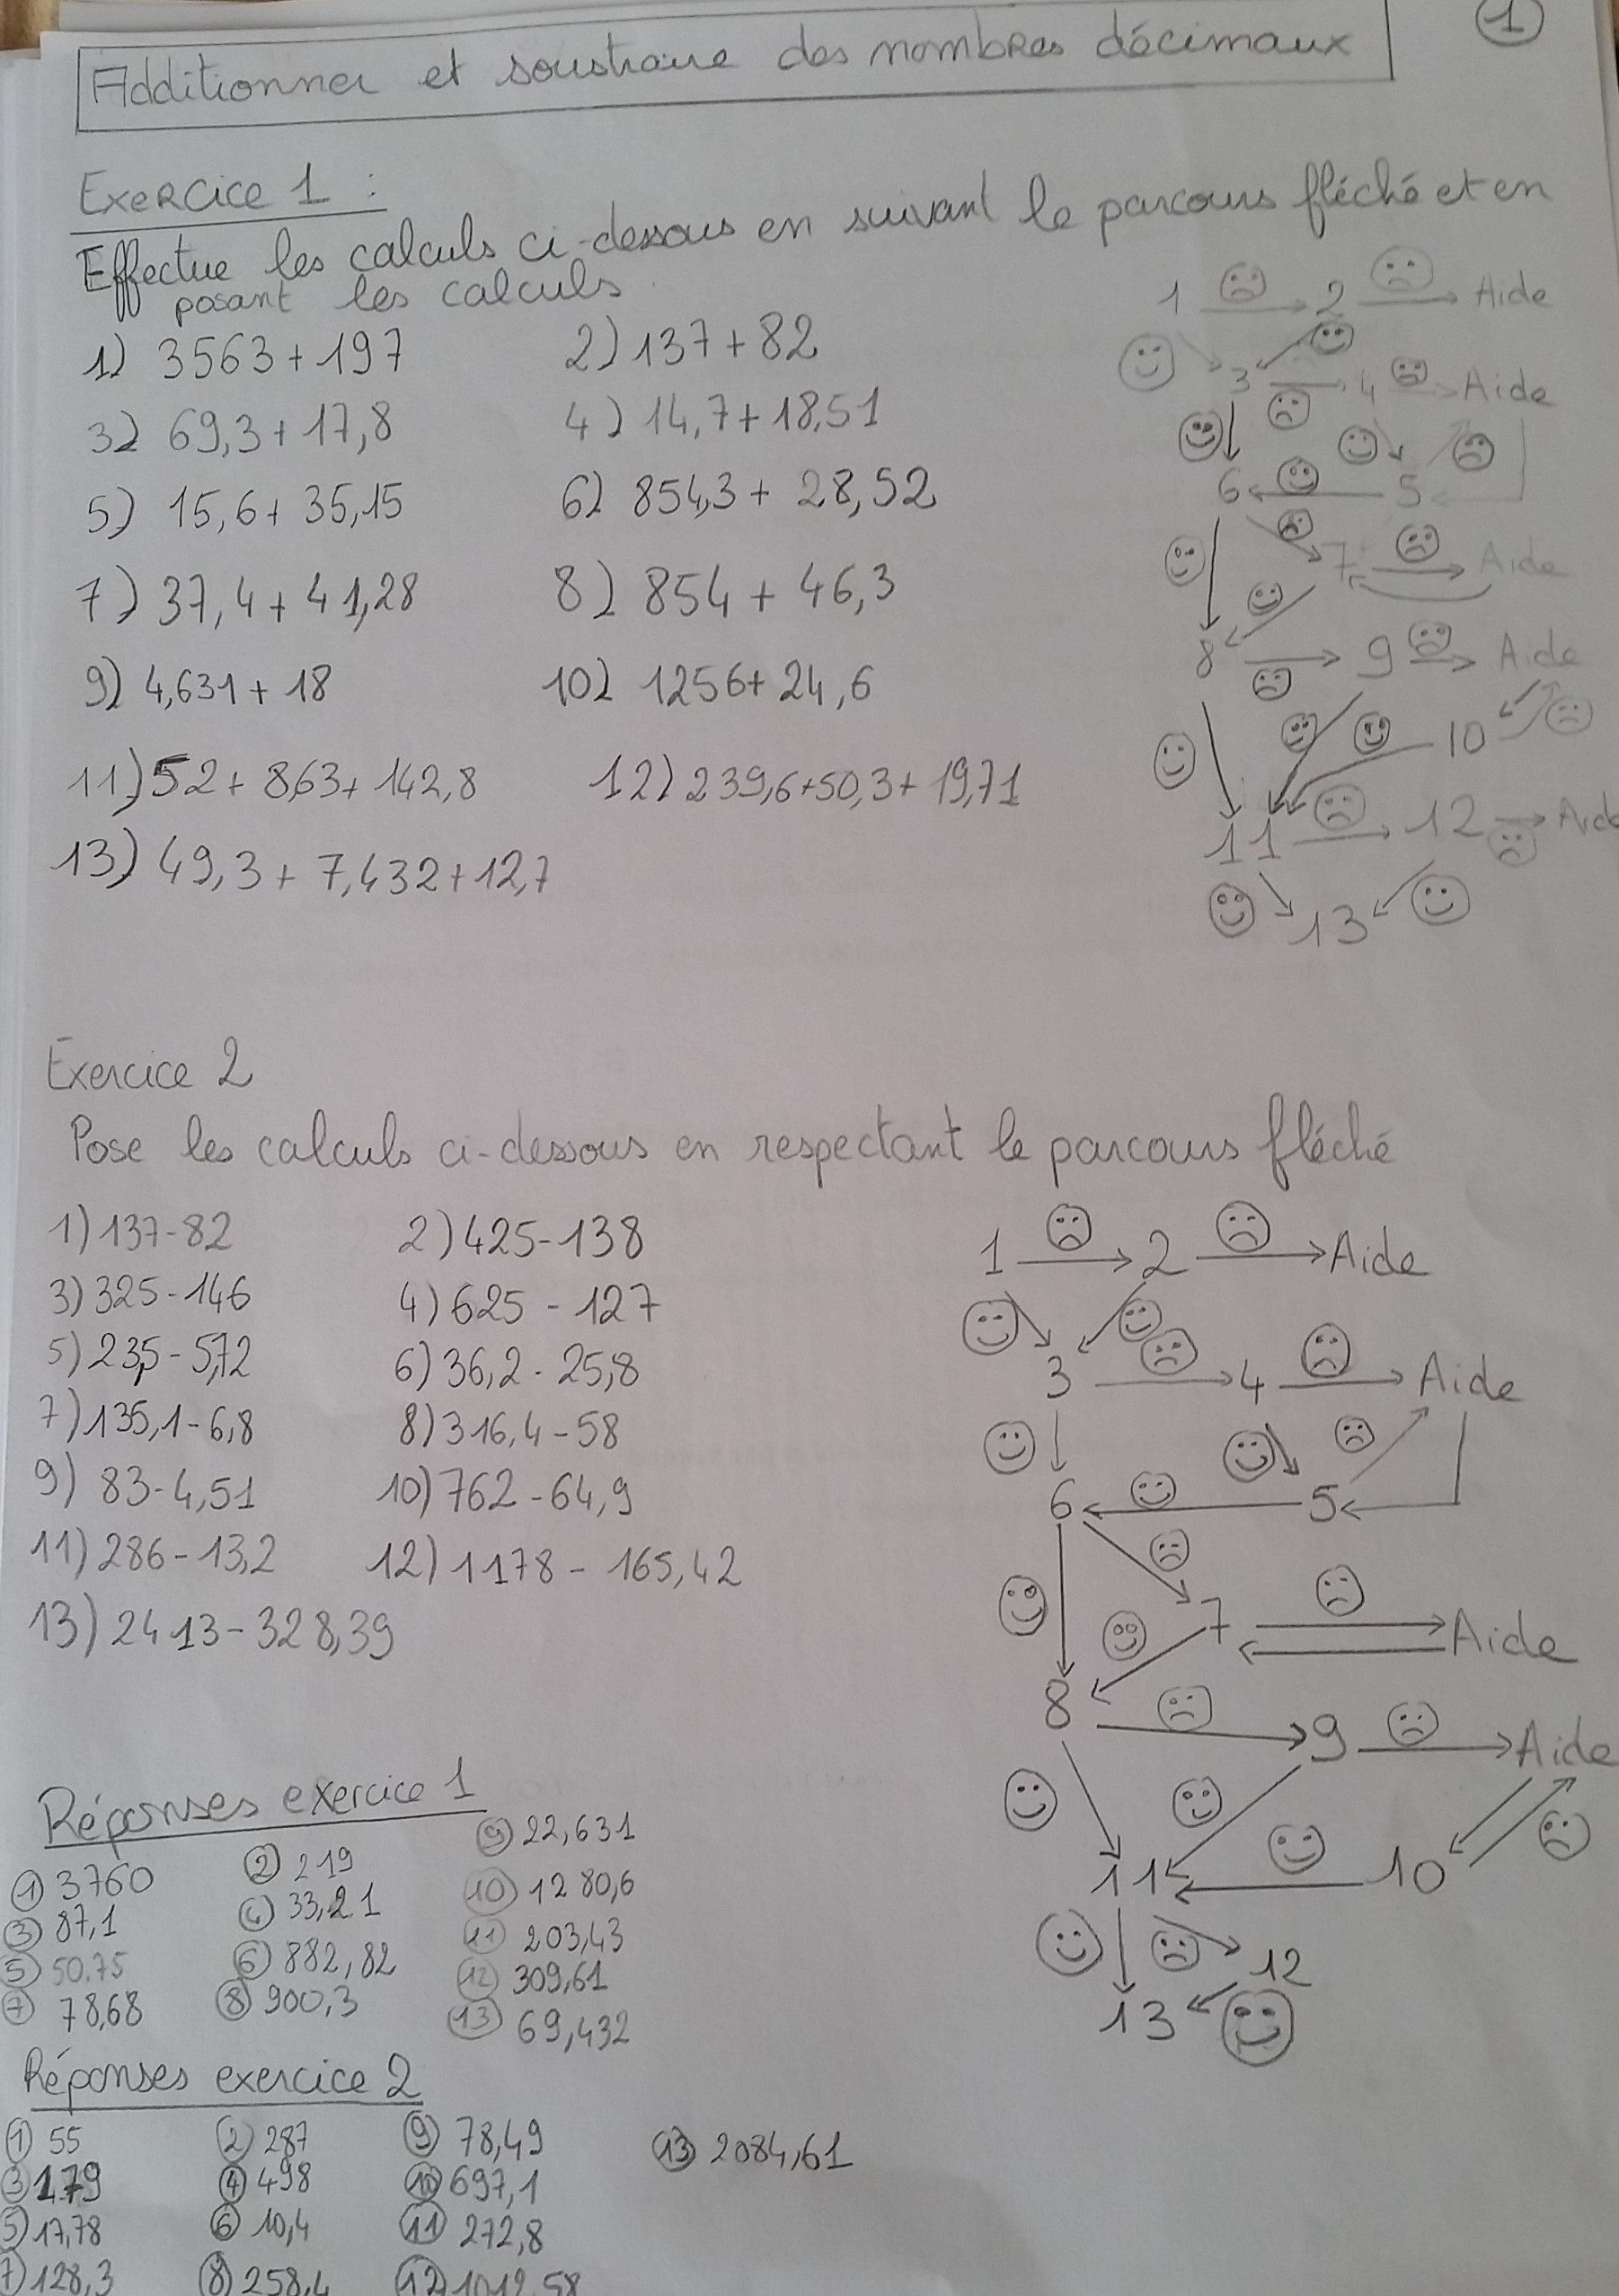 1
Additionner et soustraire des nombres décimaux
Exercice 1 :
Effectue les calculs ci-dessous en suivant le parcours fléché et en
posant les calculs.
1) 3563 + 197
2) 137 + 82
3) 69,3 + 17,8
4) 14,7 + 18,51
5) 15,6 + 35,15
6) 854,3 + 28,52
7) 37,4 + 41,28
8) 854 + 46,3
9) 4,631 + 18
10) 1256 + 24,6
11) 52 + 8,63 + 142,8
12) 239,6 + 50,3 + 19,71
13) 49,3 + 7,432 + 12,7
1 2 Aide
3 4 Aide
6 5
7 Aide
8 9 Aide
10
11 12 Aide
13
Exercice 2
Pose les calculs ci-dessous en respectant le parcours fléché
1) 137 - 82
2) 425 - 138
3) 325 - 146
4) 625 - 127
5) 23,5 - 5,72
6) 36,2 - 25,8
7) 135,1 - 6,8
8) 316,4 - 58
9) 83 - 4,51
10) 762 - 64,9
11) 286 - 13,2
12) 1178 - 165,42
13) 2413 - 328,39
1 2 Aide
3 4 Aide
6 5
7 Aide
8 9 Aide
11 10
12
13
Réponses exercice 1
1 3760
2 219
3 87,1
4 33,21
5 50,75
6 882,82
7 78,68
8 900,3
9 22,631
10 1280,6
11 203,43
12 309,61
13 69,432
Réponses exercice 2
1 55
2 287
3 179
4 498
5 17,78
6 10,4
7 128,3
8 258,4
9 78,49
10 697,1
11 272,8
12 1012,58
13 2084,61